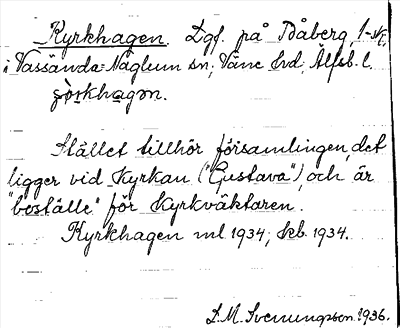 Kyrkhagen. Lgf. på Båberg, 1-sk,
i Vassända-Naglum sn; Väne hd; Älfsb. l.
Stället tillhör församlingen, det
ligger vid Kyrkan ("Gustava"), och är
"boställe" för Kyrkväktaren.
Kyrkhagen ml 1934; skb. 1934.
D.M. Svenungsson. 1936.